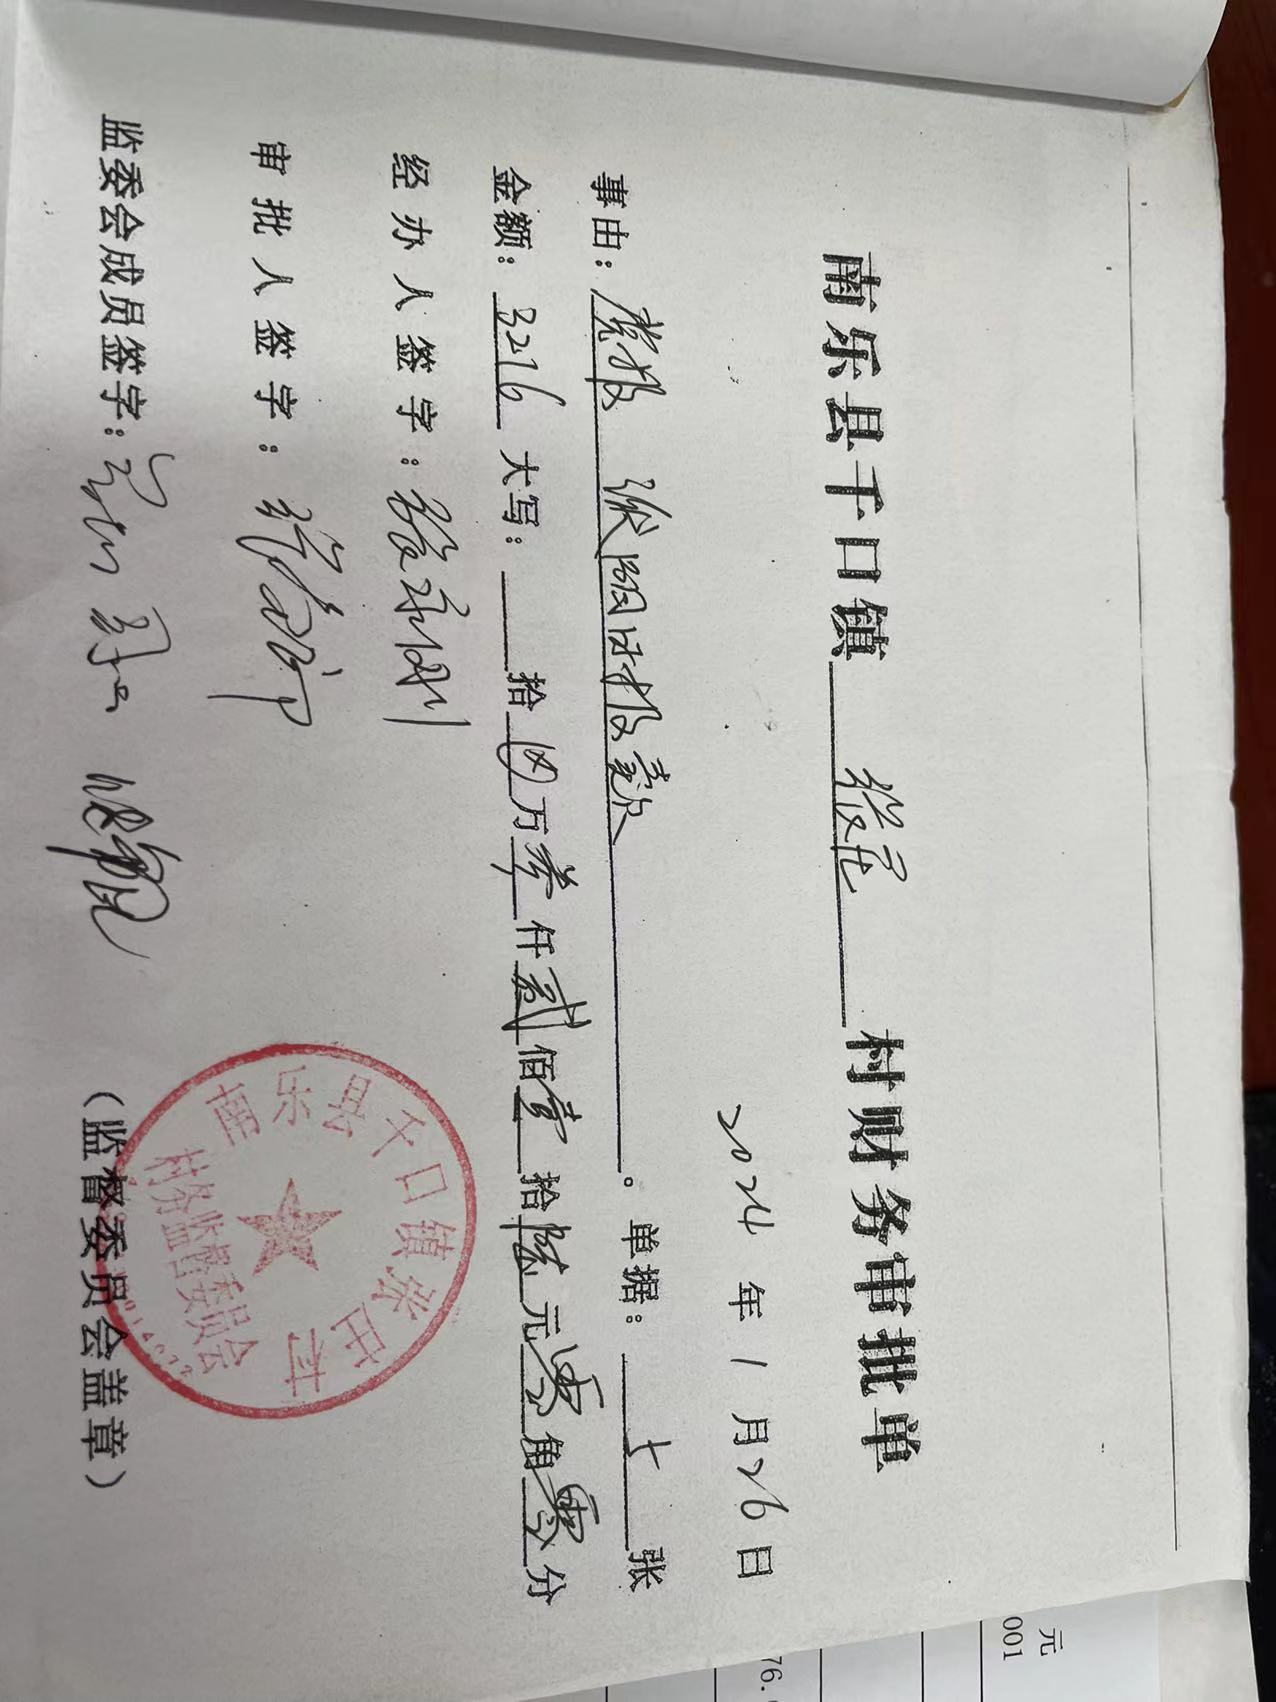 南乐县千口镇 张庄 村财务审批单
2024 年 1 月 26 日
事由: 党报 濮阳日报款 。 单据: 七 张
金额: 3216 大写: 拾 ⊗ 万 叁 仟 贰 佰 壹 拾 陆 元 零 角 零 分
经办人签字:
审批人签字:
监委会成员签字:
(监督委员会盖章)
南乐县千口镇张庄村
村务监督委员会
元
001
76.